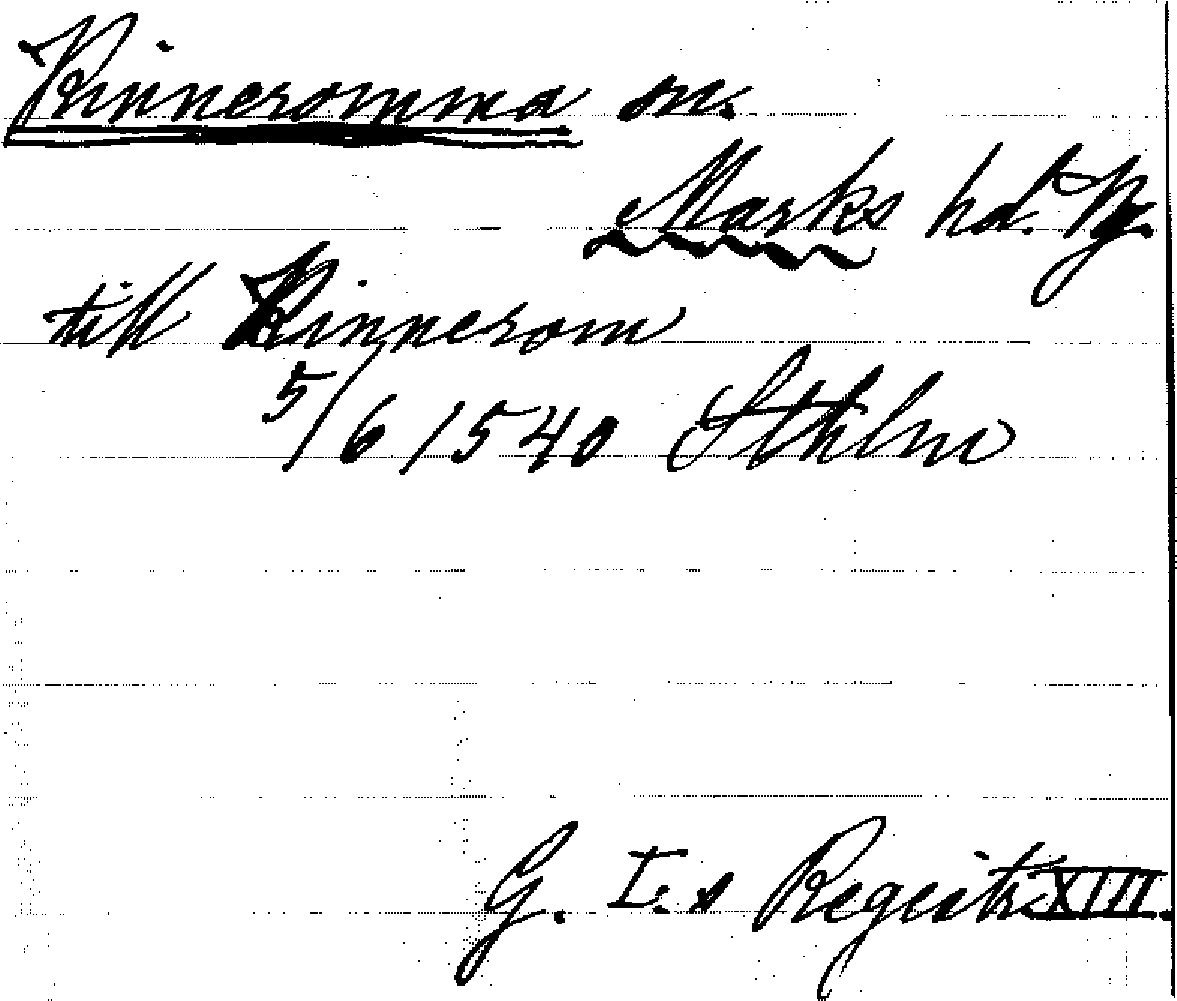 Kinneromma sn.
Marks hd. Vg.
till Kinnerom
5/6 1540 Sthlm
G. I.s Registr. XIII.